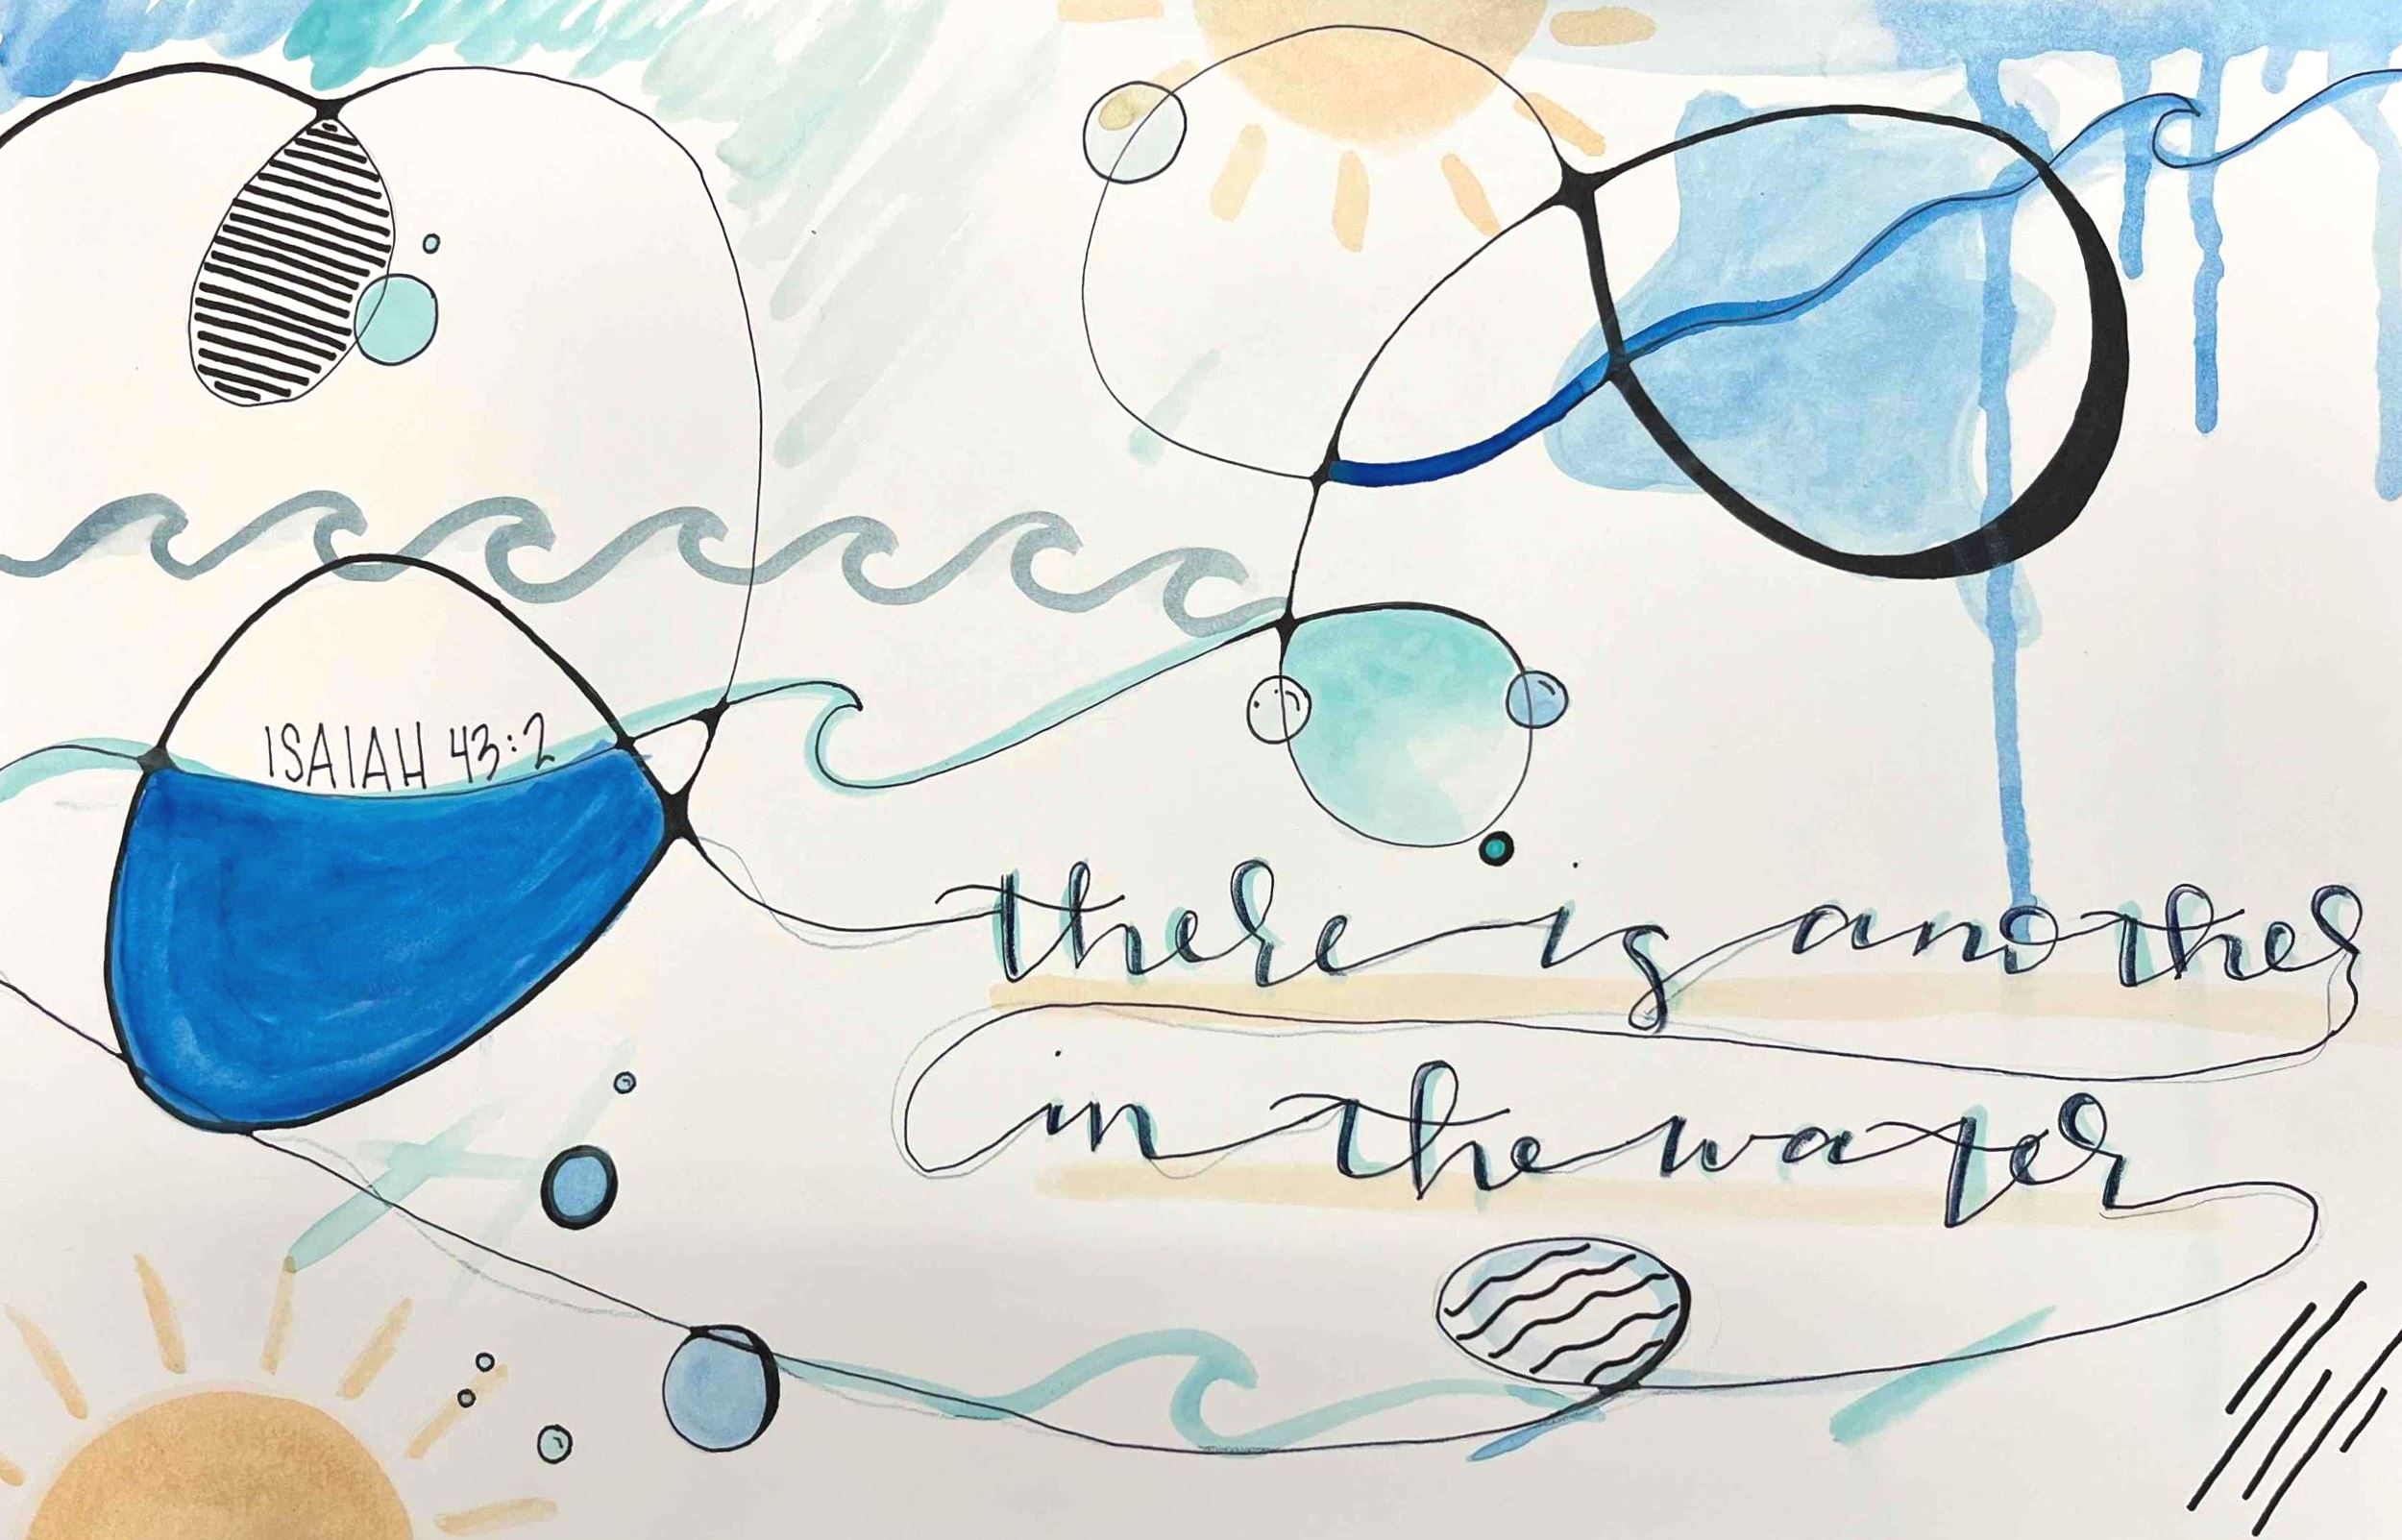 ISAIAH 43:2
there is another
in the water